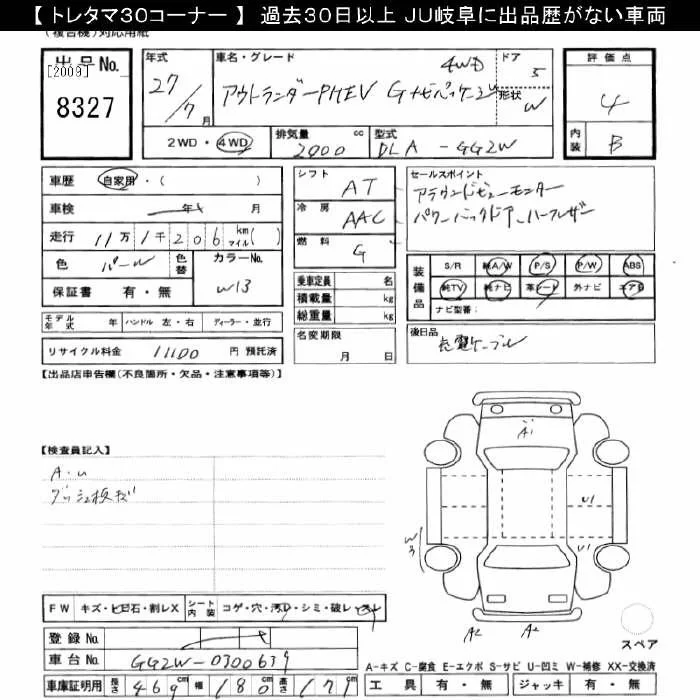 【 トレタマ30コーナー 】 過去30日以上 JU岐阜に出品歴がない車両
(複合機)対応用紙
出品No. [2009] 8327
年式 27/7月
車名・グレード アウトランダーPHEV Gナビパッケージ 4WD
ドア 5
形状 W
評価点 4
内装 B
2WD・4WD
排気量 2000 cc
型式 DLA-GG2W
車歴 自家用・( )
車検 年 月
走行 11万1千206 km マイル( )
色 パール
色替
カラーNo. W13
保証書 有・無
モデル年式 年 ハンドル 左・右 ディーラー・並行
リサイクル料金 11100 円 預託済
シフト AT
冷房 AAC
燃料 G
乗車定員 名
積載量 kg
総重量 kg
名変期限 月 日
セールスポイント
アラウンドビューモニター
パワーバックドアー ハーフレザー
装備品
S/R 純A/W P/S P/W ABS
純TV 純ナビ 革シート 外ナビ エアB
ナビ型番:
後日品 充電ケーブル
【出品店申告欄(不良箇所・欠品・注意事項等)】
【検査員記入】
A・U
ダッシュ板キズ
A1
U1
U1
W3
A2
A2
FW キズ・ヒ目石・割レX シート内装 コゲ・穴・汚レ・シミ・破レ・スレ
登録No.
車台No. GG2W-0300639
車庫証明用 長さ 469 cm 幅 180 高さ 171
スペア
A-キズ C-腐食 E-エクボ S-サビ U-凹ミ W-補修 XX-交換済
工具 有・無 ジャッキ 有・無